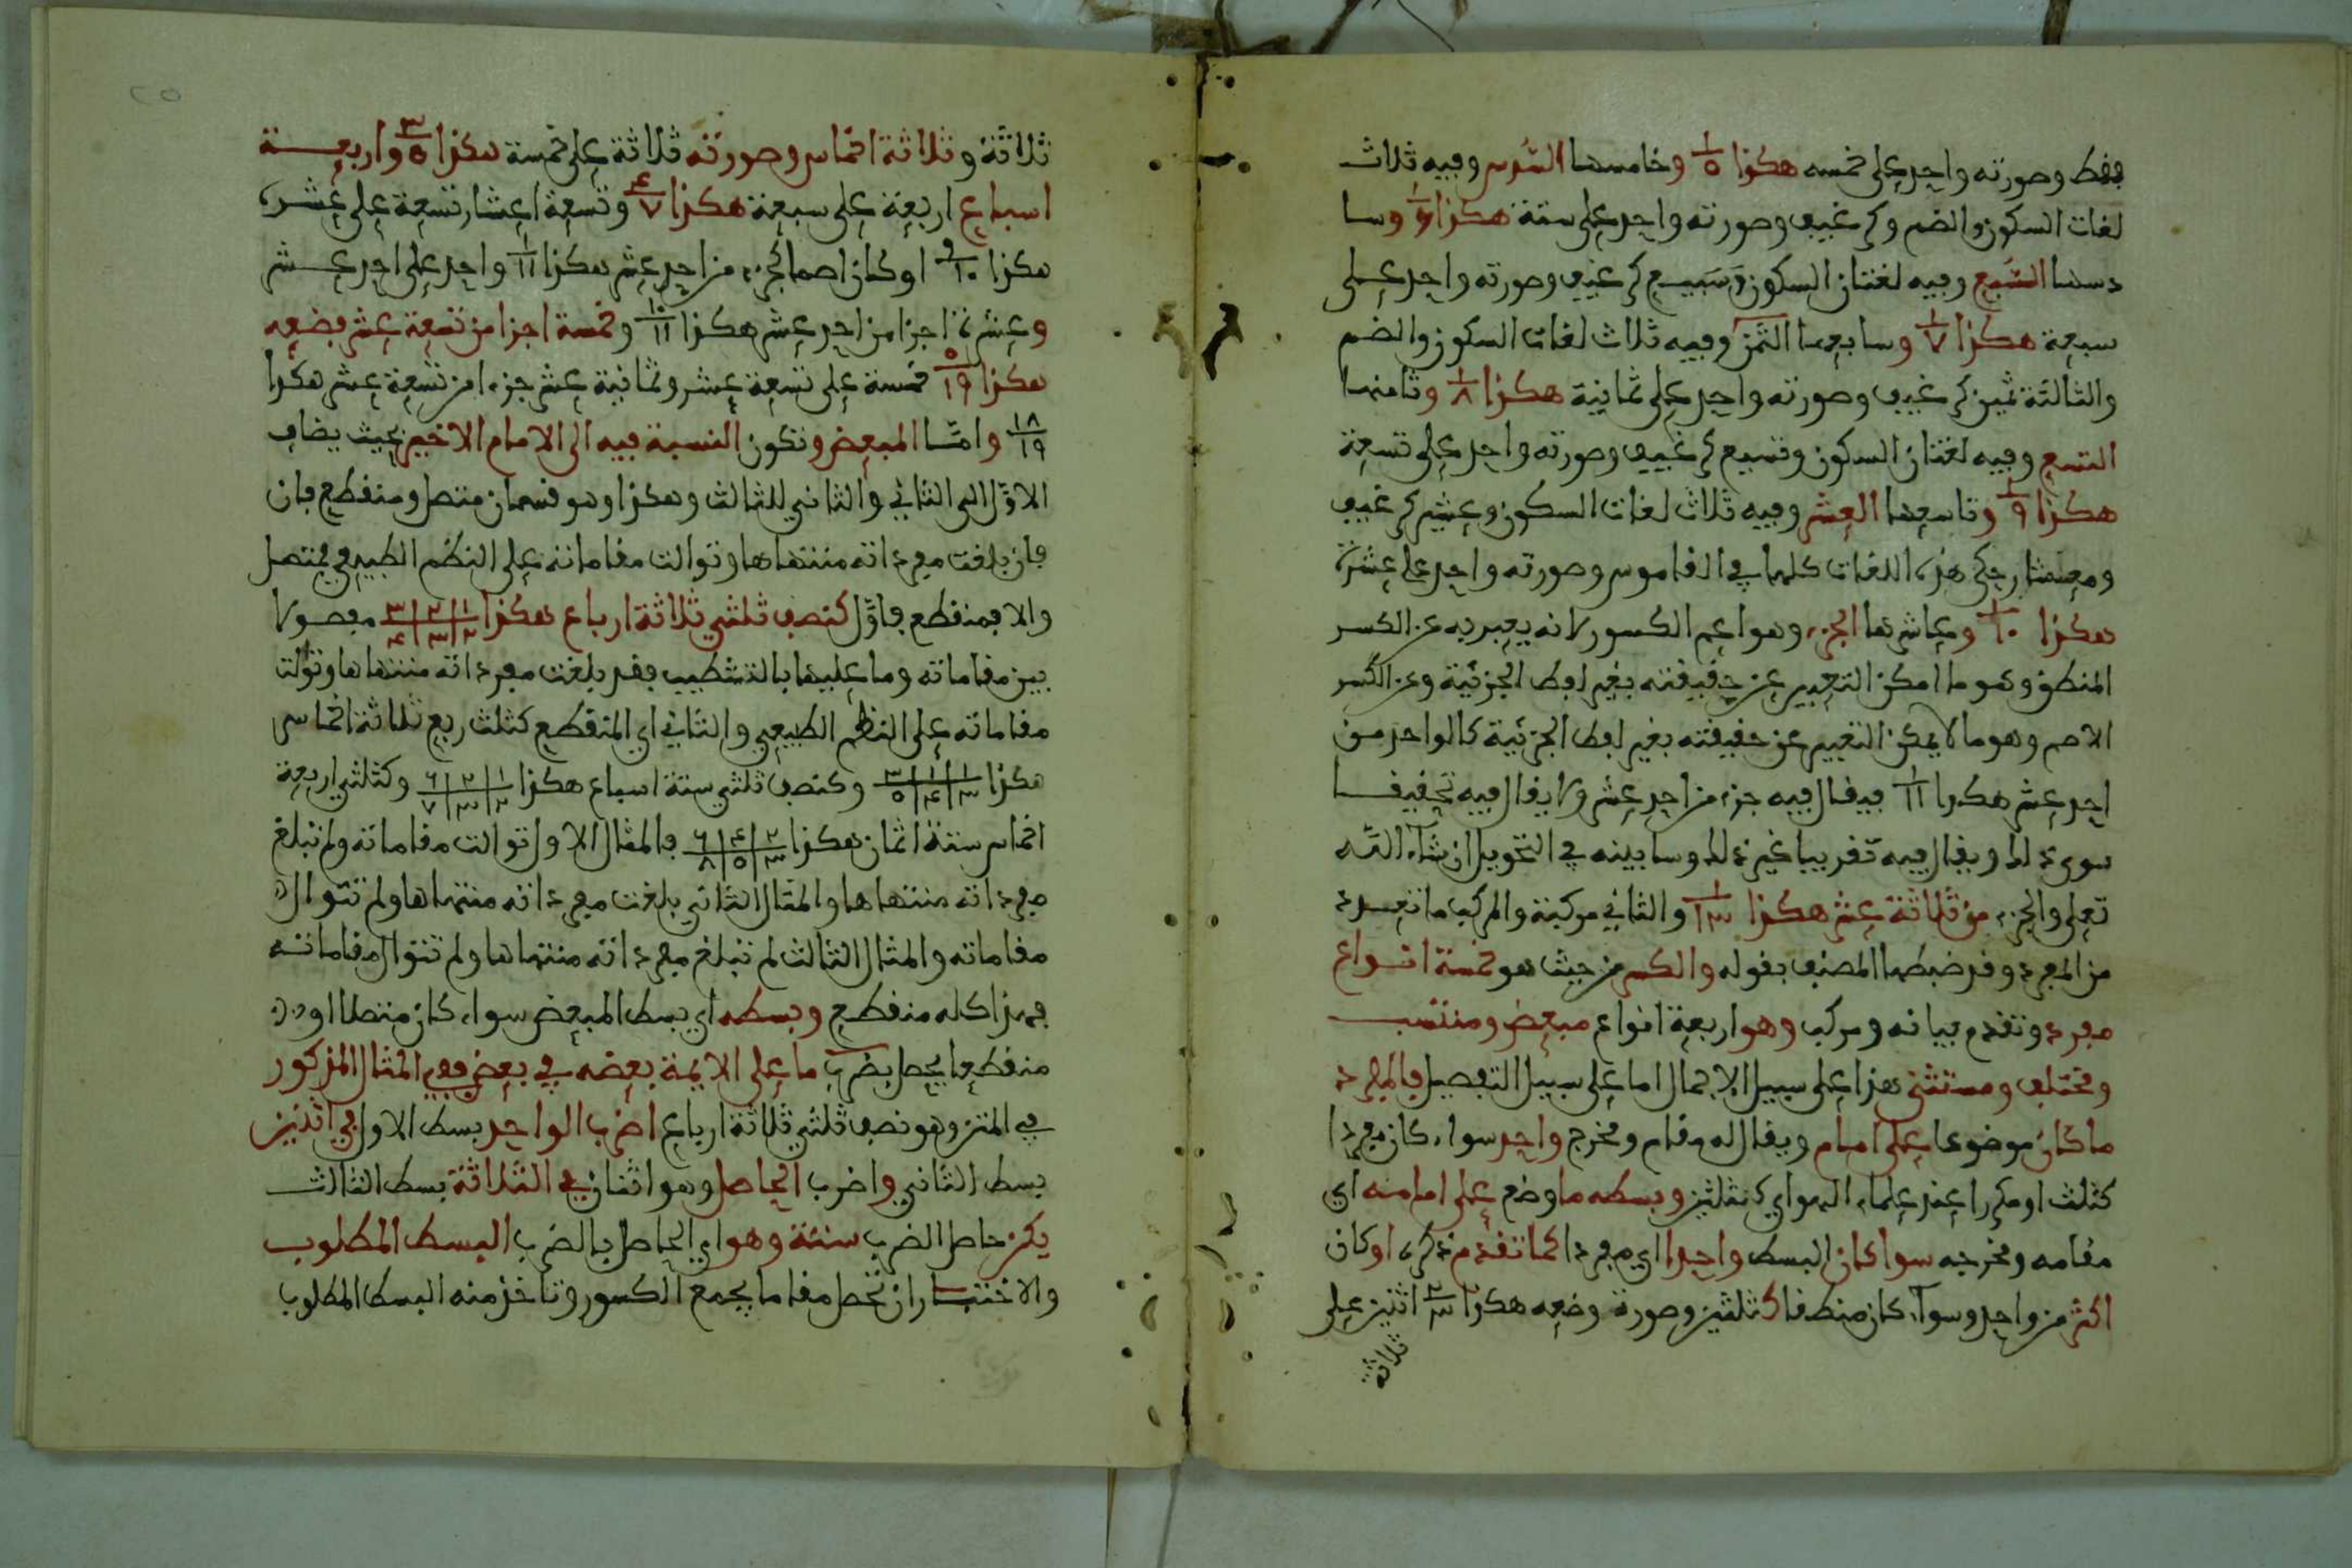 فقط وصورته واحد على خمسه هكذا ١/٥ وخامسها السُّدُس وفيه ثلاث
لغات السكون والضم وكرغيف وصورته واحد على ستة هكذا ١/٦ وسا
دسها السُّبع وفيه لغتان السكون وَسَبيع كرغيف وصورته واحد على
سبعة هكذا ١/٧ وسابعها الثُّمن وفيه ثلاث لغات السكون والضم
والثالثة ثمين كرغيف وصورته واحد على ثمانية هكذا ١/٨ وثامنها
التسع وفيه لغتان السكون وتسيع كرغيف وصورته واحد على تسعة
هكذا ١/٩ وتاسعها العشر وفيه ثلاث لغات السكون وعشير كرغيف
ومعشار حكى هذه اللغات كلها في القاموس وصورته واحد على عشرة
هكذا ١/١٠ وعاشرها الجزء وهو اعم الكسور لانه يعبر به عن الكسر
المنطق وهو ما امكن التعبير عن حقيقته بغير لفظ الجزئية وعن الكسر
الاصم وهو ما لا يمكن التعبير عن حقيقته بغير لفظ الجزئية كالواحد من
احد عشر هكذا ١/١١ فيقال فيه جزء من احد عشر ولا يقال فيه تحقيقا
سوى ذلك ويقال فيه تقريبا غير ذلك وسابينه في التحويل ان شاء الله
تعلى والجزء من ثلاثة عشر هكذا ١/١٣ والثاني مركبة والمركب ما تعدد
من المفرد وقد ضبطها المصنف بقوله والكسر من حيث هو خمسة انواع
مفرد وتقدم بيانه ومركب وهو اربعة انواع مبعض ومنتسب
ومختلف ومستثنى هذا على سبيل الاجمال اما على سبيل التفصيل فالمفرد
ما كان موضوعا على امام ويقال له مقام ومخرج واحد سواء كان مفردا
كثلث او مكررا عند علماء الهواي كثلثين وبسطه ما وضع على امامه اي
مقامه ومخرجه سوا كان البسط واحدا اي مفردا كما تقدم ذكره او كان
اكثر من واحد وسواء كان منطقا كثلثين وصورة وضعه هكذا ٢/٣ اثنين على
ثلاثة
ثلاثة وثلاثة اخماس وصورته ثلاثة على خمسة هكذا ٣/٥ واربعة
اسباع اربعة على سبعة هكذا ٤/٧ وتسعة اعشار تسعة على عشرة
هكذا ٩/١٠ او كان اصما كجزء من احد عشر هكذا ١/١١ واحد على احد عشر
وعشرة اجزا من احد عشر هكذا ١٠/١١ وخمسة اجزا من تسعة عشر فضعه
هكذا ٥/١٩ خمسة على تسعة عشر وثمانية عشر جزءا من تسعة عشر هكذا
١٨/١٩ وامّا المبعض وتكون النسبة فيه الى الامام الاخير بحيث يضاف
الاوّل الى الثاني والثاني للثالث وهكذا وهو قسمان متصل ومنقطع فان
فان بلغت مفرداته منتهاها وتوالت مقاماته على النظم الطبيعي فمتصل
والا فمنقطع فاوّل كنصف ثلثي ثلاثة ارباع هكذا ١/٢ ٢/٣ ٣/٤ مفصولا
بين مقاماته وما عليها بالتشطيب فقد بلغت مفرداته منتهاها وتوالت
مقاماته على النظم الطبيعي والثاني اي المنقطع كثلث ربع ثلاثة اخماس
هكذا ١/٣ ١/٤ ٣/٥ وكنصف ثلثي ستة اسباع هكذا ١/٢ ٢/٣ ٦/٧ وكثلثي اربعة
اخماس ستة اثمان هكذا ٢/٣ ٤/٥ ٦/٨ فالمثال الاول توالت مقاماته ولم تبلغ
مفرداته منتهاها والمثال الثاني بلغت مفرداته منتهاها ولم تتوال
مقاماته والمثال الثالث لم تبلغ مفرداته منتهاها ولم تتوال مقاماته
فهذا كله منقطع وبسطه اي بسط المبعض سواء كان متصلا او
منقطعا يحصل بضرب ما على الايمة بعضه في بعض ففي المثال المذكور
في المتن وهو نصف ثلثي ثلاثة ارباع اضرب الواحد بسط الاول في اثنين
بسط الثاني واضرب الحاصل وهو اثنان في الثلاثة بسط الثالث
يكن حاصل الضرب ستة وهو اي الحاصل بالضرب البسط المطلوب
والاختسار ان تحصل مقاما يجمع الكسور وتاخذ منه البسط المطلوب